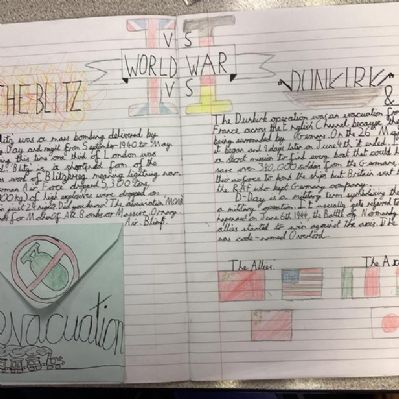 V S
WORLD WAR
V S
THE BLITZ
litz was a mass bombing delivered by
Day and night from September 1940 to May
this time one third of London was
Blitz is shorted form of the
word of Blitzkrieg meaning lightning war.
erman Air Force dropped 5,300 long
of high explosives were dropped on
in just 24 nights
Air Blimf.
evacuation
DUNKIRK
&
The Dunkirk operation was an evacuation from
France across the English Channel because they
being surrounded by Germans. On the 26th May
it began and 9 days later on June 4th it ended
a short mission to find every boat that would
save over 330,000 soldiers from the Germans,
their air force to bomb the ships but Britain sent
the RAF who kept Germany company.
D-Day is a military term
a military operation it usually gets referred to
happened on June 6th 1944, the Battle of Normandy
allies started to win against the axis. D-Day
was code-named Overlord.
The Allies:
The Axis